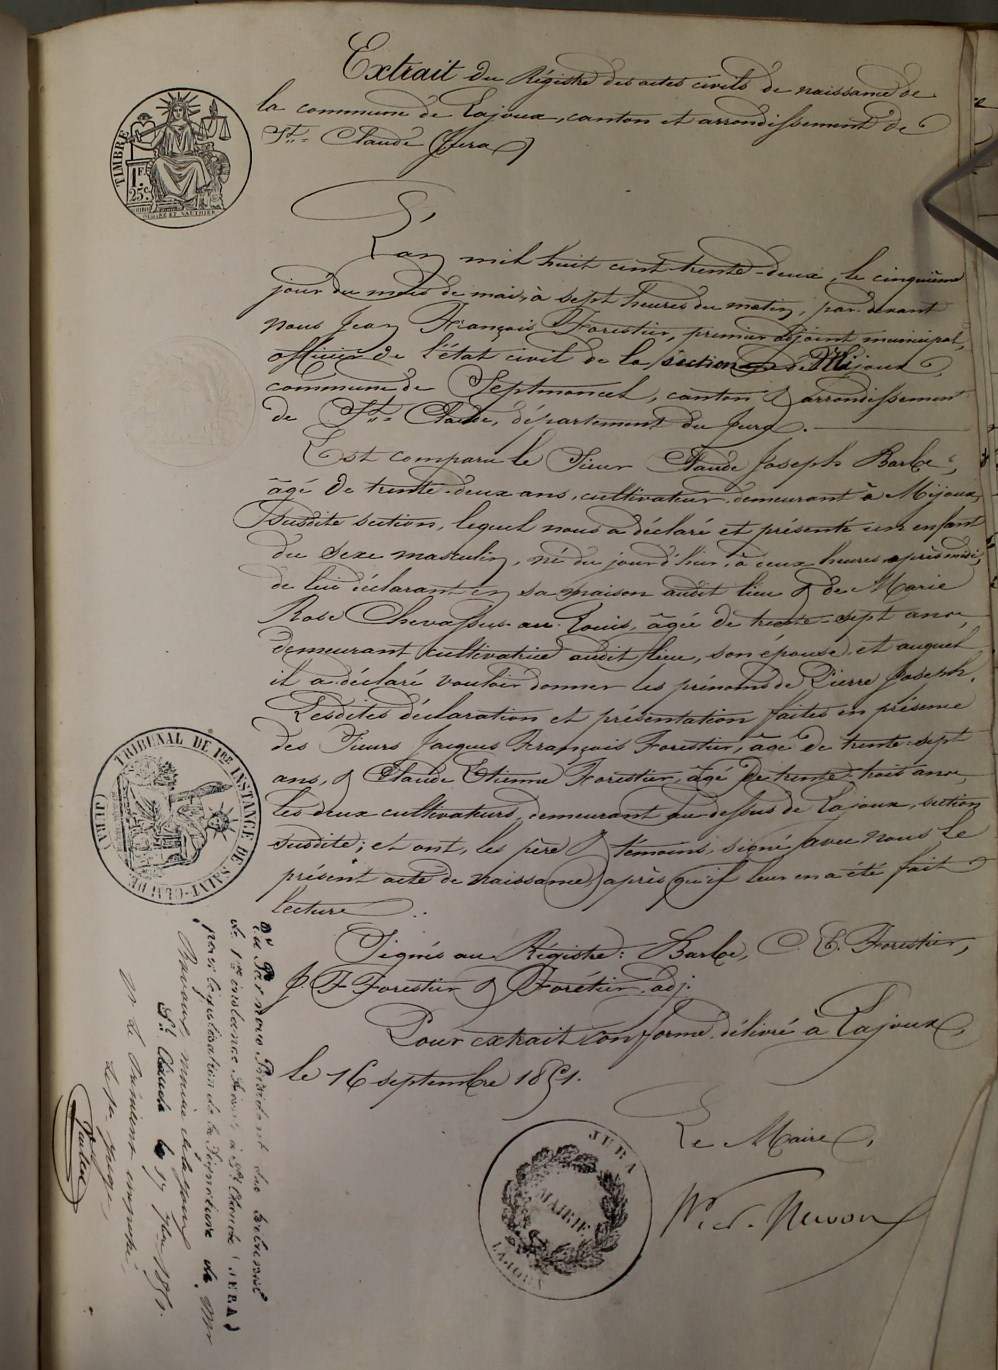 Extrait du Régistre des actes civils de naissance de
la commune de Lajoux, canton et arrondissement de
St. Claude (Jura)
TIMBRE
1F
25c.
L'an mil huit cent trente-deux, le cinquième
jour du mois de mai, à sept heures du matin, par devant
nous Jean François Forestier, premier adjoint municipal,
officier de l'état civil de la section de Mijoux,
commune de Septmoncel, canton & arrondissement
de St. Claude, département du Jura.
Est comparu le Sieur Claude Joseph Barbe,
âgé de trente-deux ans, cultivateur demeurant à Mijoux,
susdite section, lequel nous a déclaré et présenté un enfant
du sexe masculin, né du jour d'hier, à deux heures après midi,
de lui déclarant en sa maison audit lieu & de Marie
Rose Chevassus-au-Louis, âgée de trente-sept ans,
demeurant cultivatrice audit lieu, son épouse, et auquel
il a déclaré vouloir donner les prénoms de Pierre Joseph.
Lesdites déclaration et présentation faites en présence
des Sieurs Jacques François Forestier, âgé de trente-sept
ans, & Claude Etienne Forestier, âgé de trente-trois ans,
les deux cultivateurs, demeurant au dessus de Lajoux, section
susdite; et ont, les père & témoins signé avec nous le
présent acte de naissance, après qu'il leur en a été fait
lecture.
Signés au Régistre: Barbe, C. E. Forestier,
J. F Forestier & Forétier, adj.
Pour extrait conforme délivré à Lajoux,
le 16 septembre 1851.
Le Maire,
JURA
MAIRIE
LAJOUX
TRIBUNAL DE 1RE INSTANCE DE SAINT-CLAUDE
(JURA)
Vu Par nous Président du tribunal
de 1re instance séant à St. Claude (JURA)
pour légalisation de la signature de Mr
maire de Lajoux
St. Claude le 17 7bre 1851.
Mr le Président empêché
Le juge